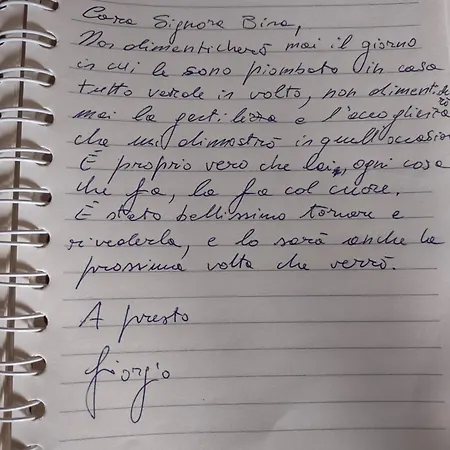 Cara Signora Bina,
Non dimenticherò mai il giorno
in cui le sono piombato in casa
tutto verde in volto, non dimenticherò
mai la gentilezza e l'accoglienza
che mi dimostrò in quell'occasion
È proprio vero che lei, ogni cosa
che fa, la fa col cuore.
È stato bellissimo tornare e
rivederla, e lo sarà anche la
prossima volta che verrò.
A presto
Giorgio